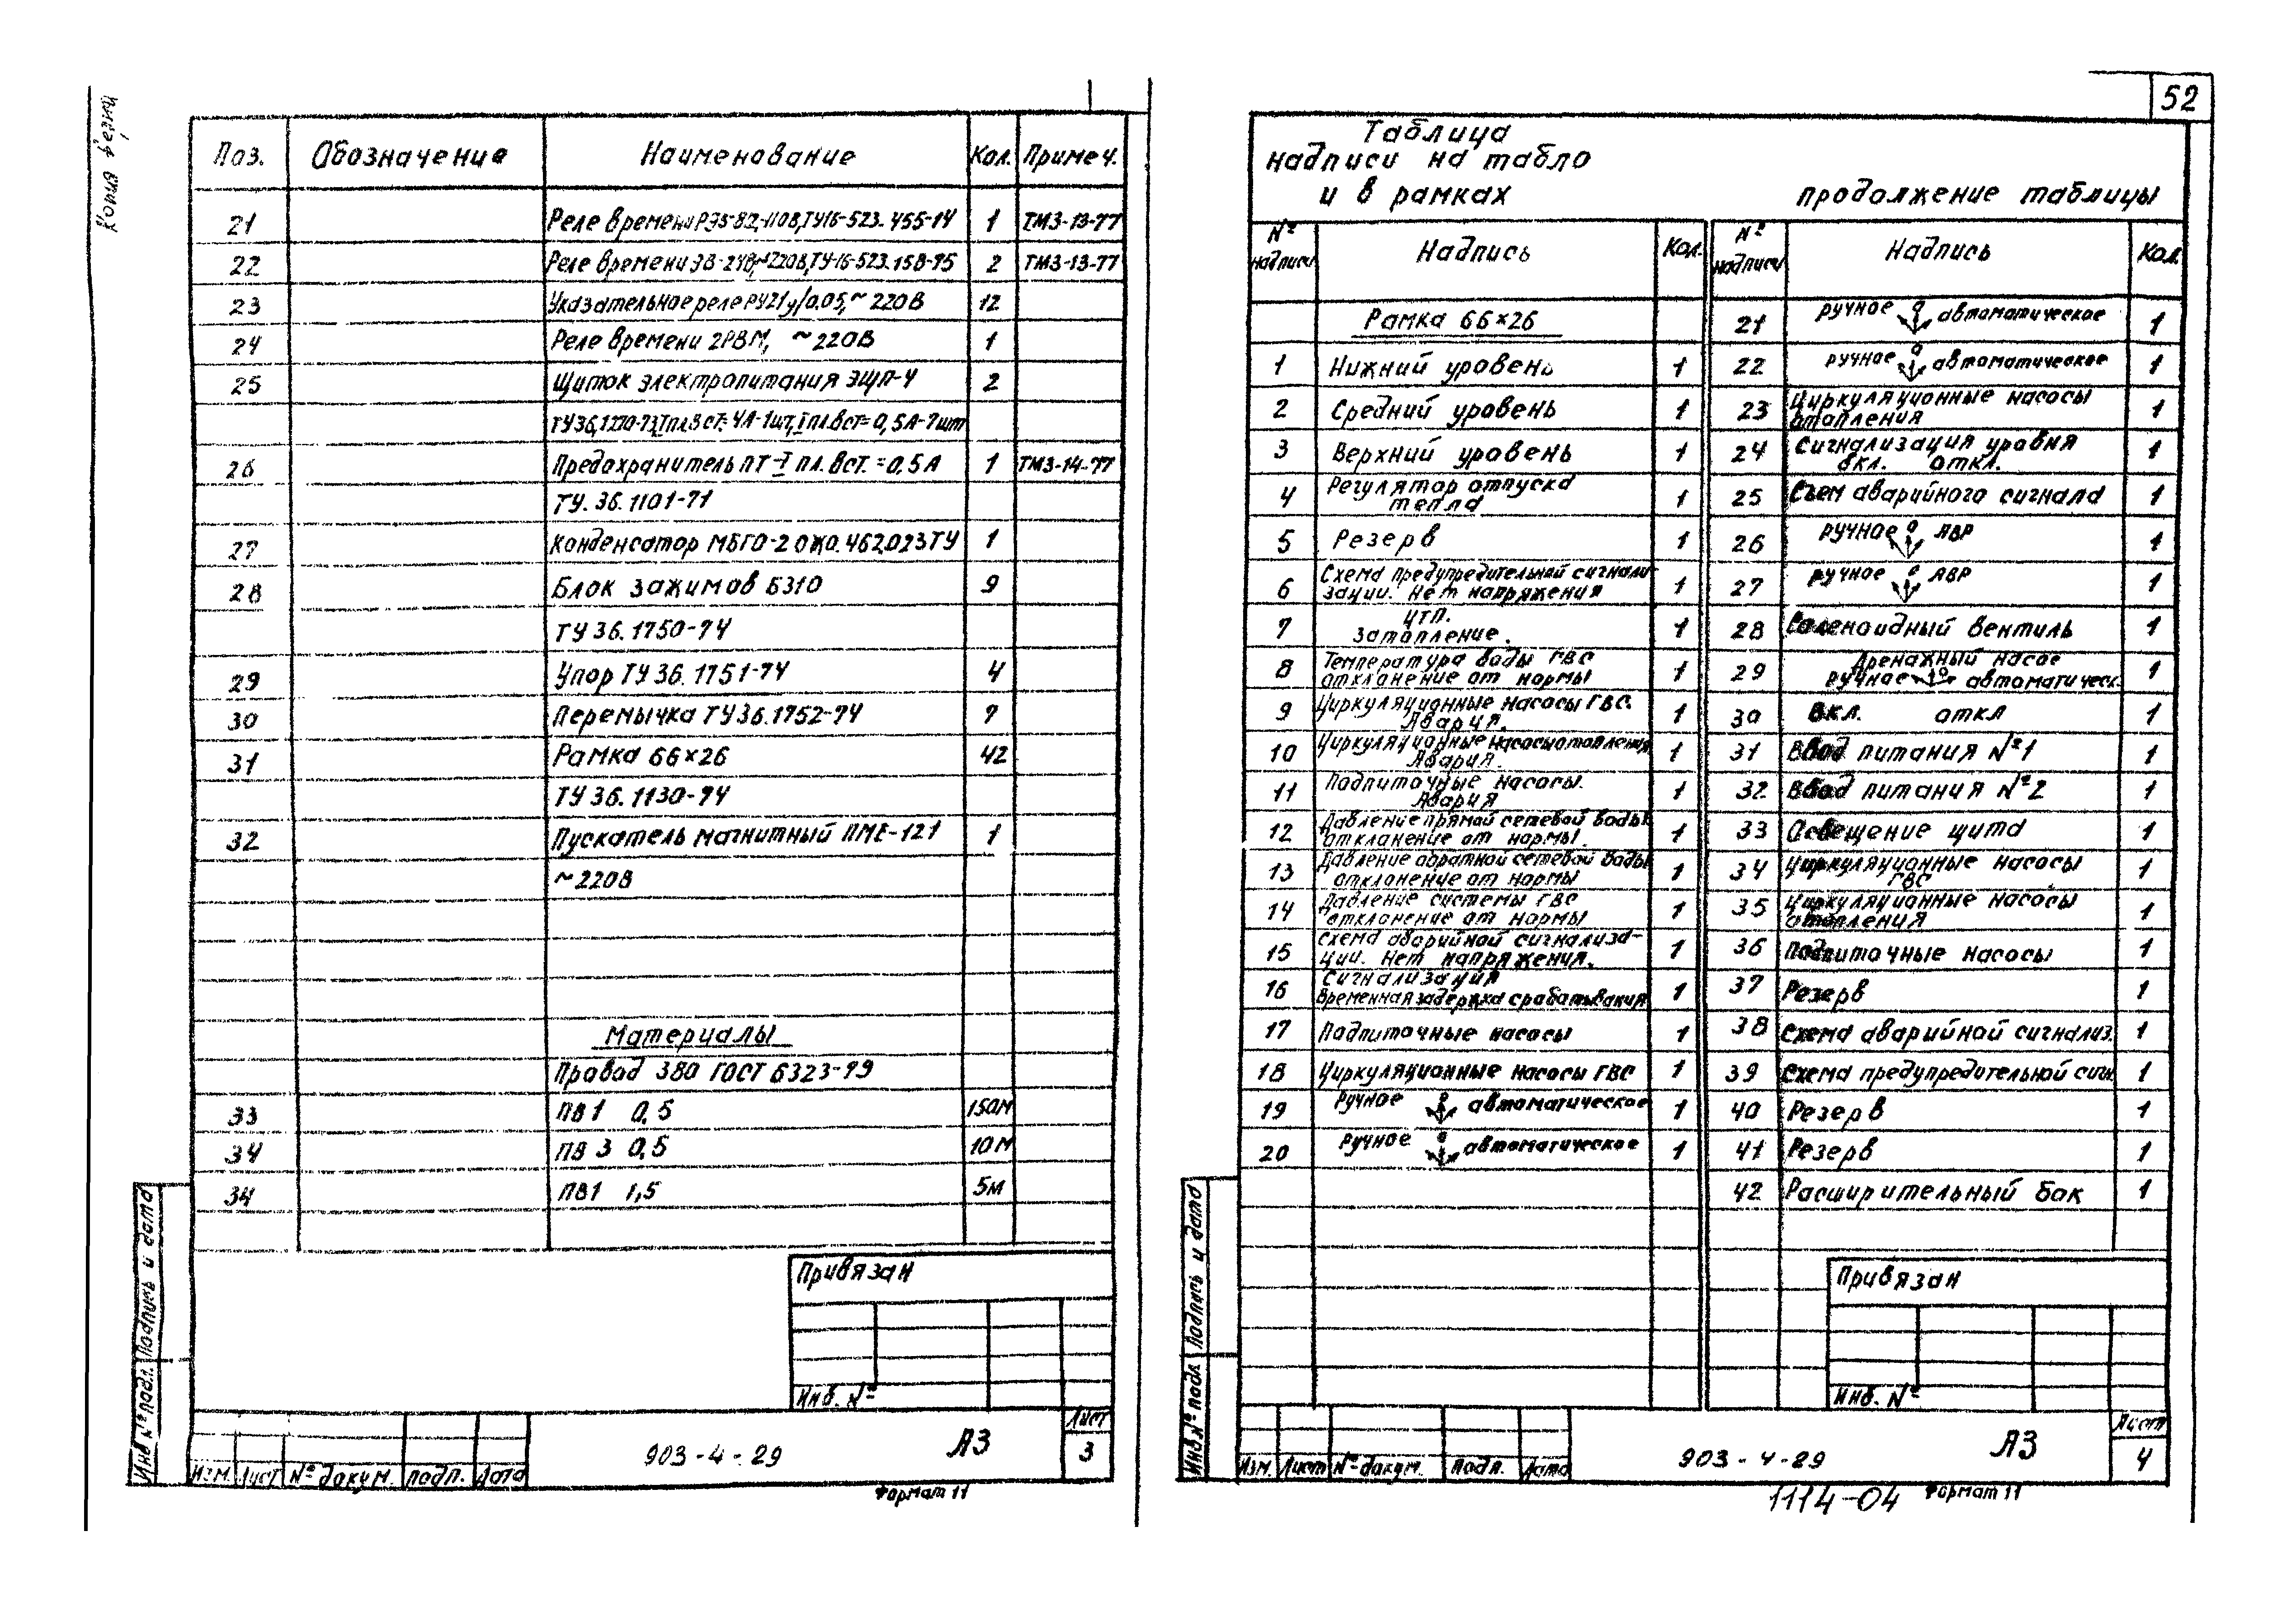 Поз. Обозначение Наименование Кол. Примеч.
21 Реле времени РЭ5-82,-110В,ТУ16-523.455-14 1 ТМ3-13-77
22 Реле времени ЭВ-248,~220В,ТУ-16-523.158-75 2 ТМ3-13-77
23 Указательное реле РУ21у/0.05,~220В 12
24 Реле времени 2РВМ, ~220В 1
25 Щиток электропитания ЭЩП-4 2
26 Предохранитель ПТ-I пл. вст. =0,5А 1 ТМ3-14-77
ТУ. 36. 1101-71
27 Конденсатор МБГО-2 ожо. 462.023ТУ 1
28 Блок зажимов БЗ10 9
ТУ 36. 1750-74
29 Упор ТУ 36. 1751-74 4
30 Перемычка ТУ36.1752-74 7
31 Рамка 66×26 42
ТУ 36. 1130-74
32 Пускатель магнитный ПМЕ-121 1
~220В
Материалы
Провод 380 ГОСТ 6323-79
33 ПВ1 0,5 150м
34 ПВ 3 0,5 10м
34 ПВ1 1,5 5м
Привязан
Инв. №
Изм. Лист № докум. подп. Дата
903-4-29 АЗ
Лист
3
Формат 11
Инв № подл. Подпись и дата
52
Таблица
надписи на табло
и в рамках
продолжение таблицы
№ надписи Надпись Кол. № надписи Надпись Кол.
Рамка 66×26
1 Нижний уровень 1
2 Средний уровень 1
3 Верхний уровень 1
4 Регулятор отпуска
тепла 1
5 Резерв 1
6 Схема предупредительной сигнали-
зации. Нет напряжения 1
7 ЦТП.
Затопление. 1
8 Температура воды ГВС
отклонение от нормы 1
9 Циркуляционные насосы ГВС.
Авария. 1
10 Циркуляционные насосы отопления
Авария. 1
11 Подпиточные насосы.
Авария 1
12 Давление прямой сетевой воды
отклонение от нормы. 1
13 Давление обратной сетевой воды
отклонение от нормы 1
14 Давление системы ГВС
отклонение от нормы 1
15 Схема аварийной сигнализа-
ции. Нет напряжения. 1
16 Сигнализация
Временная задержка срабатывания 1
17 Подпиточные насосы 1
18 Циркуляционные насосы ГВС 1
19 Ручное 0 автоматическое 1
20 Ручное 0 автоматическое 1
21 ручное 0 автоматическое 1
22 ручное 0 автоматическое 1
23 Циркуляционные насосы
отопления 1
24 Сигнализация уровня
вкл. откл. 1
25 Съем аварийного сигнала 1
26 ручное 0 АВР 1
27 ручное 0 АВР 1
28 Соленоидный вентиль 1
29 Дренажный насос
ручное 0 автоматическ. 1
30 Вкл. откл 1
31 Ввод питания №1 1
32 Ввод питания №2 1
33 Освещение щита 1
34 Циркуляционные насосы
ГВС 1
35 Циркуляционные насосы
отопления 1
36 Подпиточные насосы 1
37 Резерв 1
38 Схема аварийной сигнализ. 1
39 Схема предупредительной сигн. 1
40 Резерв 1
41 Резерв 1
42 Расширительный бак 1
Привязан
Инв. №
Изм. Лист № докум. Подп. Дата
903-4-29 АЗ
Лист
4
1114-04 Формат 11
Инв № подл Подпись и дата